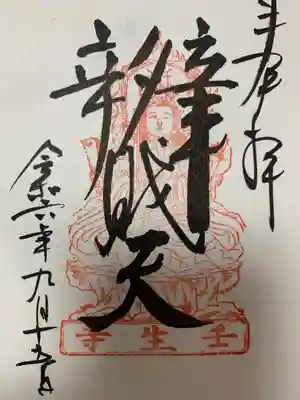 奉拝
辨財天
令和六年九月十五日
壬生寺